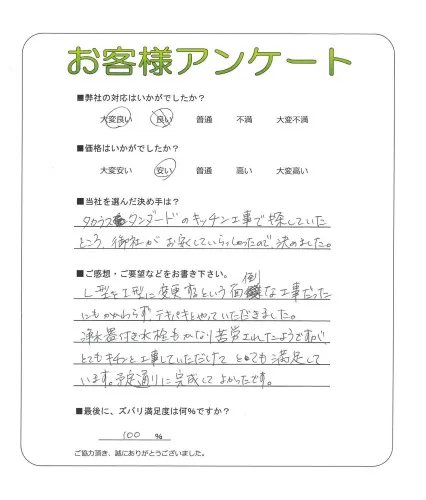 お客様アンケート
■弊社の対応はいかがでしたか？
大変良い 良い 普通 不満 大変不満
■価格はいかがでしたか？
大変安い 安い 普通 高い 大変高い
■当社を選んだ決め手は？
タカラスタンダードのキッチン工事で探していた
ところ、御社がお安くしていらっしゃったので、決めました。
■ご感想・ご要望などをお書き下さい。
L型をI型に変更するという面倒な工事だった
にもかかわらず、テキパキとやっていただきました。
浄水器付き水栓もかなり苦労されたようですが、
とてもキチンと工事していただけてとても満足して
います。予定通りに完成してよかったです。
■最後に、ズバリ満足度は何%ですか？
100 %
ご協力頂き、誠にありがとうございました。